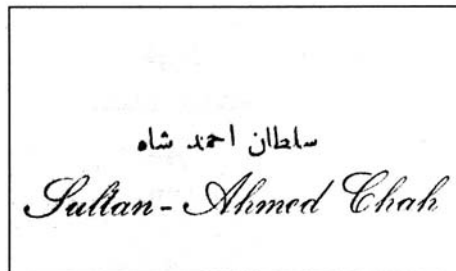 سلطان احمد شاه
Sultan-Ahmed Chah